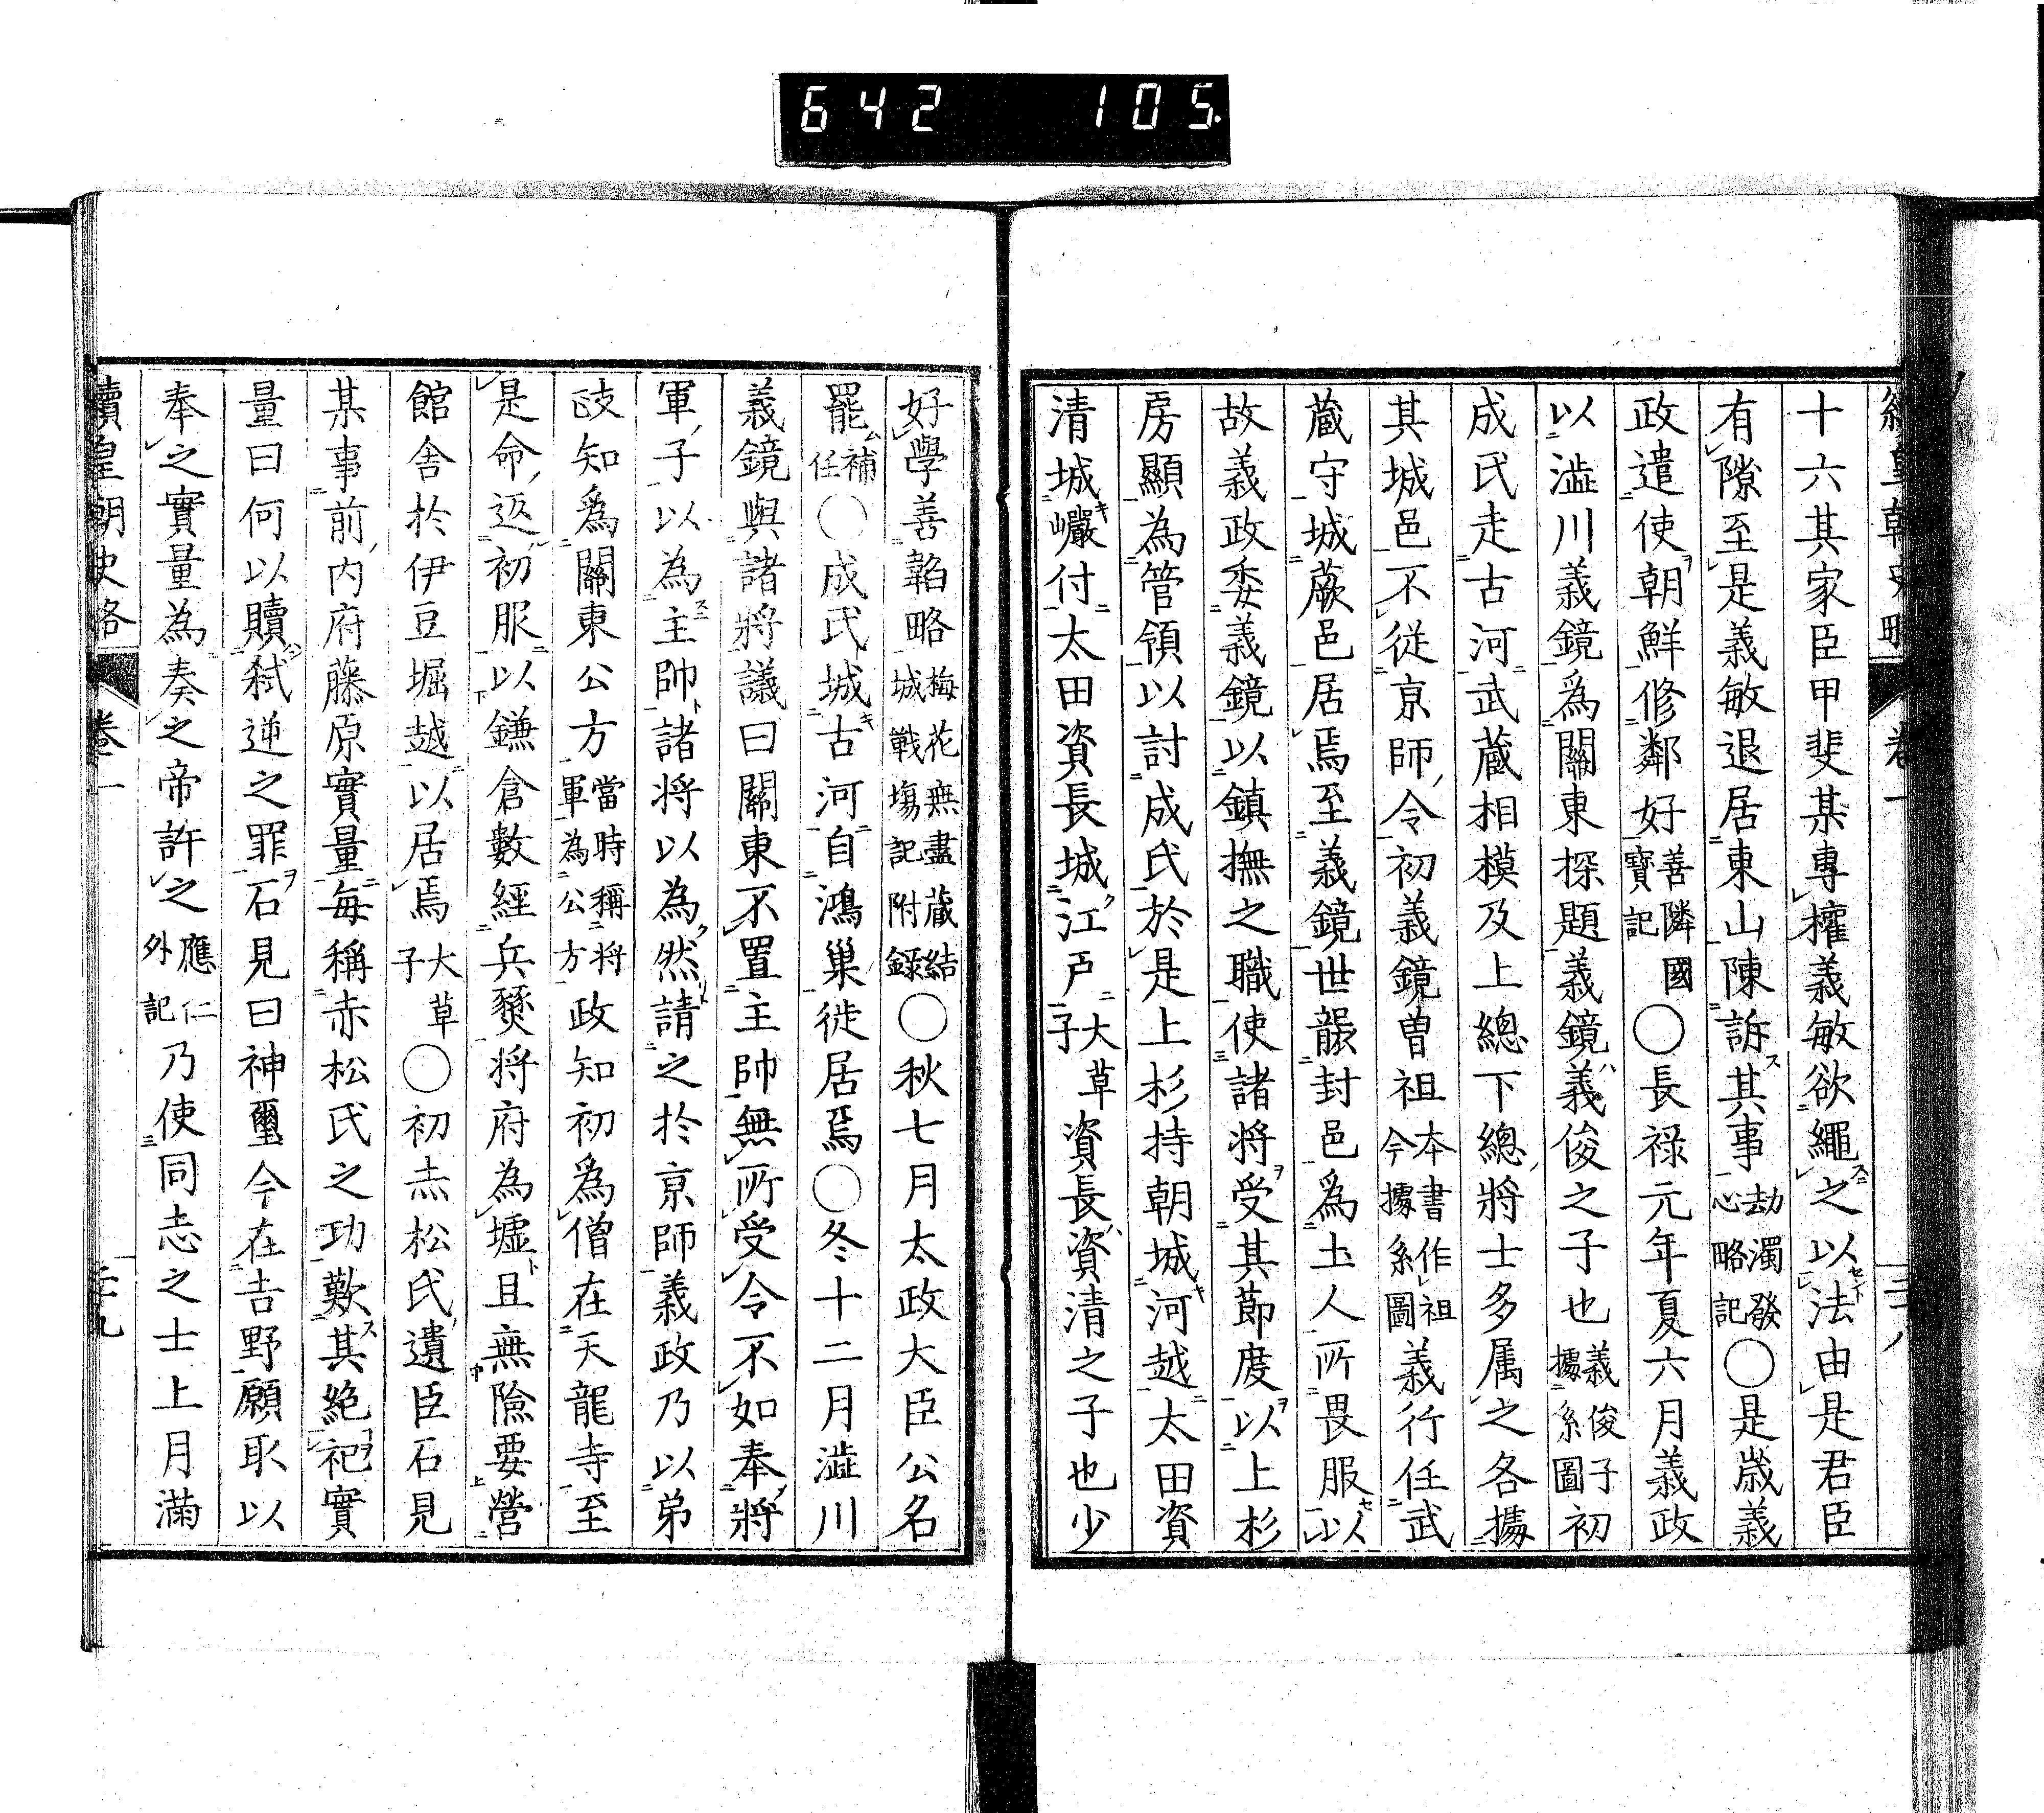 642 105.
十六其家臣甲斐某專權義敏欲繩之以法由是君臣
有隙至是義敏退居東山陳訴其事劫濁發心略記〇是歲義
政遣使朝鮮修鄰好善隣國寶記〇長禄元年夏六月義政
以澁川義鏡爲關東探題義鏡義俊之子也義俊子據系圖初
成氏走古河武蔵相模及上總下總將士多属之各據
其城邑不從京師令初義鏡曽祖本書作祖今據系圖義行任武
蔵守城蕨邑居焉至義鏡世襲封邑爲土人所畏服以
故義政委義鏡以鎮撫之職使諸将受其節度以上杉
房顯為管領以討成氏於是上杉持朝城河越太田資
清城巗付太田資長城江戸大草子資長資清之子也少
好學善韜略梅花無盡蔵結城戦場記附録〇秋七月太政大臣公名
罷公補任〇成氏城古河自鴻巣徙居焉〇冬十二月澁川
義鏡與諸將議曰關東不置主帥無所受令不如奉將
軍子以為主帥諸将以為然請之於京師義政乃以弟
政知爲關東公方當時稱将軍為公方政知初爲僧在天龍寺至
是命返初服以鎌倉數經兵燹将府為墟且無險要營
館舎於伊豆堀越以居焉大草子〇初赤松氏遺臣石見
某事前内府藤原實量毎稱赤松氏之功歎其絶祀實
量曰何以贖弑逆之罪石見曰神璽今在吉野願取以
奉之實量為奏之帝許之應仁外記乃使同志之士上月滿
續皇朝史略 卷一